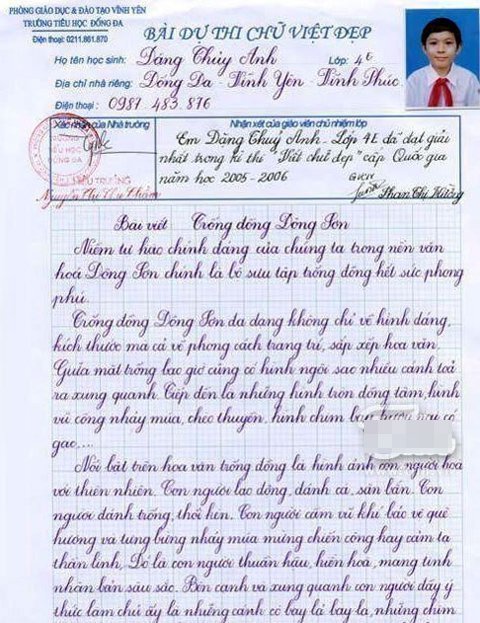 PHÒNG GIÁO DỤC & ĐÀO TẠO VĨNH YÊN
TRƯỜNG TIỂU HỌC ĐỐNG ĐA
Điện thoại: 0211.861.870
BÀI DỰ THI CHỮ VIỆT ĐẸP
Họ tên học sinh: Đặng Thủy Anh Lớp: 4E
Địa chỉ nhà riêng: Đống Đa - Vĩnh Yên - Vĩnh Phúc.
Điện thoại: 0987 483 876
Xác nhận của Nhà trường
HIỆU TRƯỞNG
Nhận xét của giáo viên chủ nhiệm lớp
Em Đặng Thuỷ Anh - Lớp 4E đã đạt giải
nhất trong kì thi "Viết chữ đẹp" cấp Quốc gia
năm học 2005 - 2006
GVCN
Phan Thị Hường
Bài viết Trống đồng Đông Sơn
Niềm tự hào chính đáng của chúng ta trong nền văn
hoá Đông Sơn chính là bộ sưu tập trống đồng hết sức phong
phú.
Trống đồng Đông Sơn đa dạng không chỉ về hình dáng,
kích thước mà cả về phong cách trang trí, sắp xếp hoa văn.
Giữa mặt trống bao giờ cũng có hình ngôi sao nhiều cánh toả
ra xung quanh. Tiếp đến là những hình tròn đồng tâm, hình
vũ công nhảy múa, chèo thuyền, hình chim
gạc....
Nổi bật trên hoa văn trống đồng là hình ảnh con người hoà
với thiên nhiên. Con người lao động, đánh cá, săn bắn. Con
người đánh trống, thổi kèn. Con người cầm vũ khí bảo vệ quê
hương và tưng bừng nhảy múa mừng chiến công hay cảm tạ
thần linh, Đó là con người thuần hậu, hiền hoà, mang tính
nhân bản sâu sắc. Bên cạnh và xung quanh con người đầy ý
thức làm chủ ấy là những cánh cò bay lả bay la, những chim